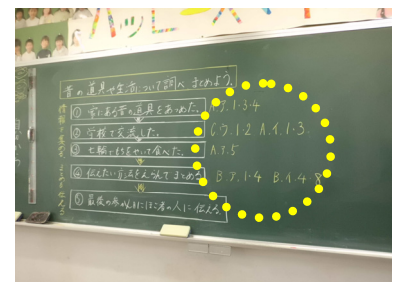 昔の道具や生活について調べまとめよう。
① 家にある昔の道具をあつめた。 A.ア.1・3・4
② 学校で交流した。 C.ウ.1・2 A.イ.1・3
③ 七輪でもちをやいて食べた。 A.ア.5
④ 伝えたい方法をえらんでまとめる B.ア.1・4 B.イ.4-8
⑤ 最後の参かん日にほご者の人に伝える